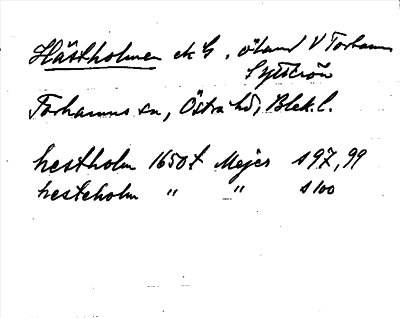 Hästholmen ek G, öland V Torhamn
Sytströn
Torhamns sn, Östra hd, Blek. l.
hestholm 1650 t Mejer s 97, 99
hesteholm " " s 100